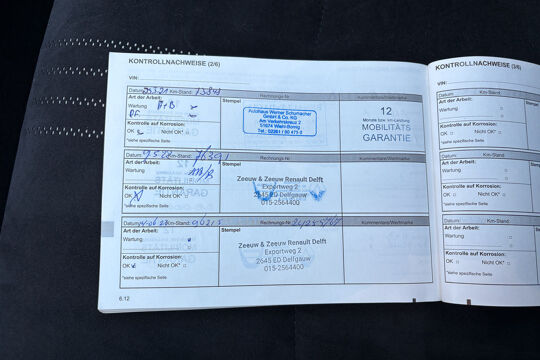 KONTROLLNACHWEISE (2/6)
VIN:
Datum: Km-Stand: Rechnungs-Nr.
Art der Arbeit: Stempel
Wartung A+B
Kontrolle auf Korrosion:
OK Nicht OK*
*siehe spezifische Seite
Autohaus Werner Schumacher
GmbH & Co. KG
Am Verkehrskreuz 2
51674 Wiehl-Bomig
Tel.: 02261 / 80 475-0
12
MOBILITÄTS
GARANTIE
Datum: 9.5.22 Km-Stand: Rechnungs-Nr. Kommentare/Wertmarke
Art der Arbeit: Stempel
Wartung A+B
Kontrolle auf Korrosion:
OK Nicht OK*
*siehe spezifische Seite
Zeeuw & Zeeuw Renault Delft
Exportweg 2
2645 ED Delfgauw
015-2564400
Datum: Km-Stand: Rechnungs-Nr. Kommentare/Wertmarke
Art der Arbeit: Stempel
Wartung
Kontrolle auf Korrosion:
OK Nicht OK*
*siehe spezifische Seite
Zeeuw & Zeeuw Renault Delft
Exportweg 2
2645 ED Delfgauw
015-2564400
6.12
KONTROLLNACHWEISE (3/6)
VIN:
Datum: Km-Stand:
Art der Arbeit: Stempel
Wartung
Kontrolle auf Korrosion:
OK Nicht OK*
*siehe spezifische Seite
Datum: Km-Stand:
Art der Arbeit: Stempel
Wartung
Kontrolle auf Korrosion:
OK Nicht OK*
*siehe spezifische Seite
Datum: Km-Stand:
Art der Arbeit: Stempel
Wartung
Kontrolle auf Korrosion:
OK Nicht OK*
*siehe spezifische Seite